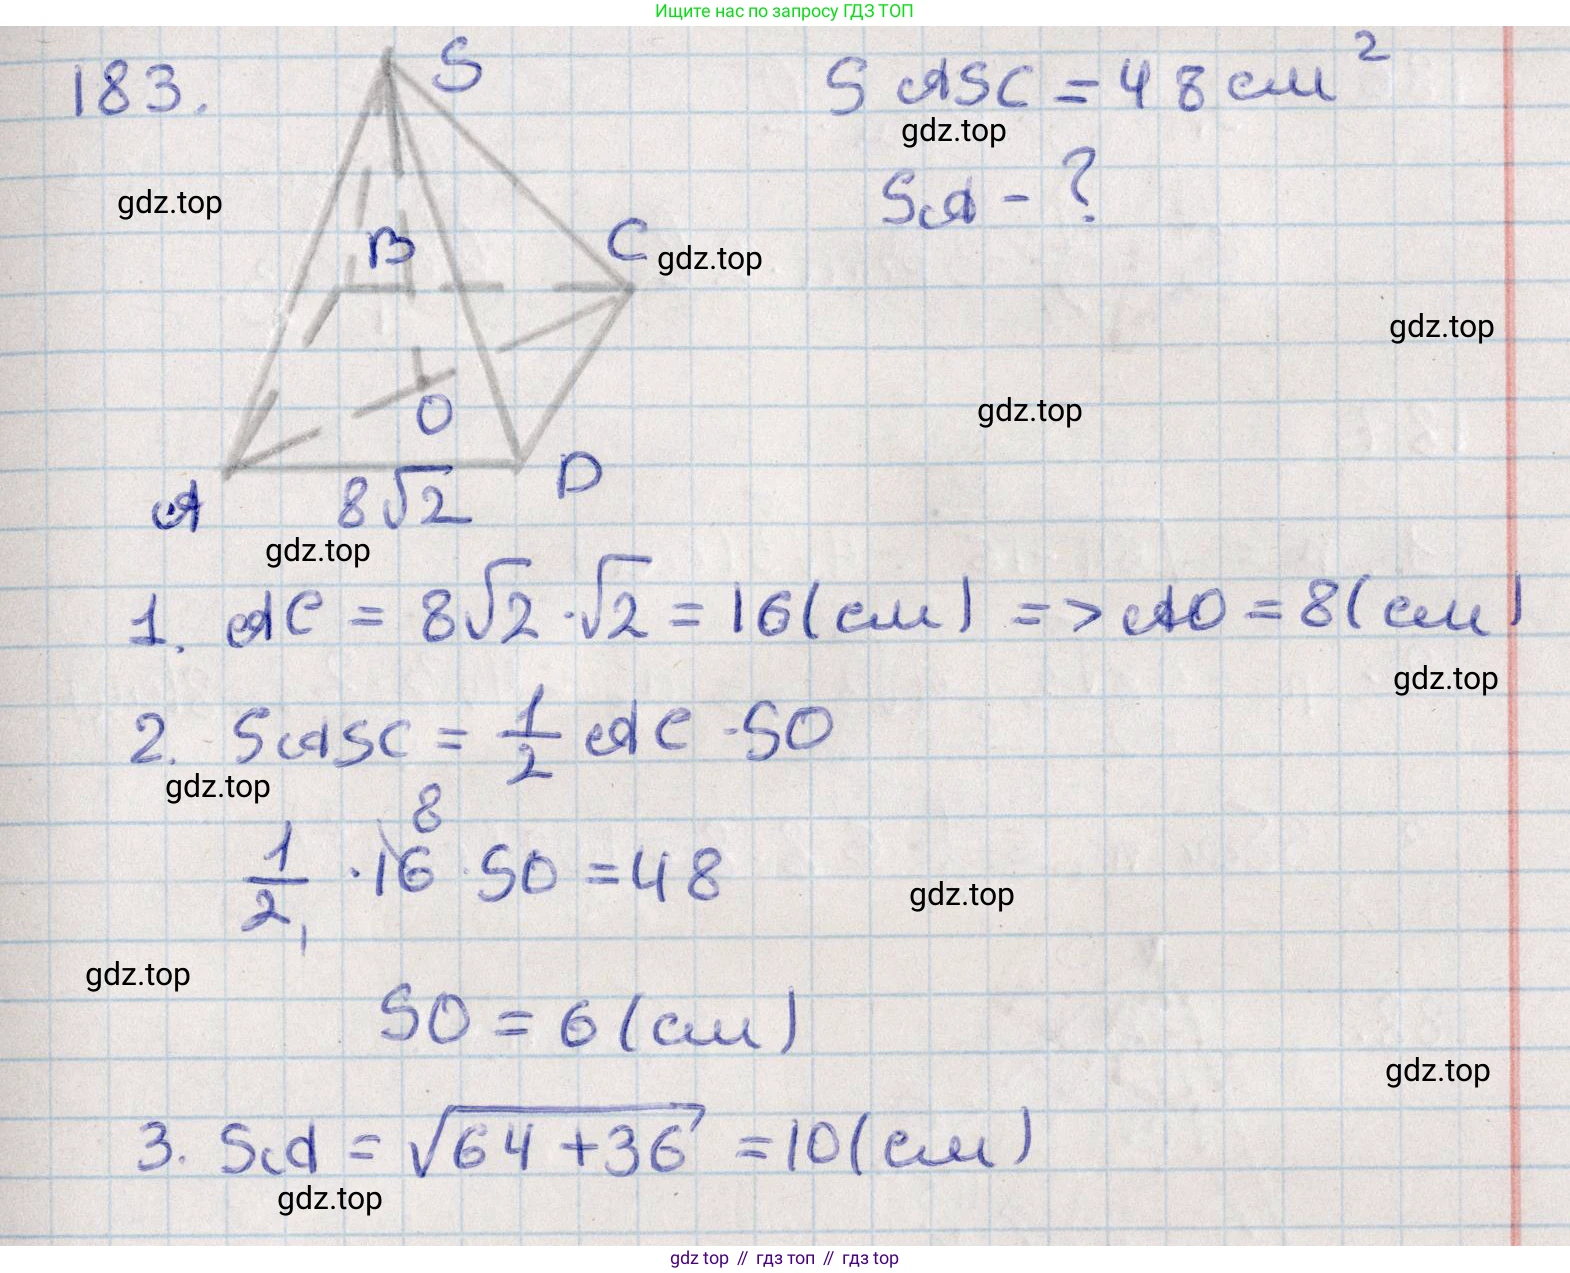 Ищите нас по запросу ГДЗ ТОП
183.
S
S ASC = 48 см²
gdz.top
SA - ?
gdz.top
B
C
gdz.top
gdz.top
gdz.top
O
A
8√2
D
gdz.top
1. AC = 8√2 · √2 = 16 (см) => AO = 8 (см)
gdz.top
2. SASC = 1/2 AC · SO
gdz.top
8
1/2 · 16 · SO = 48
1
gdz.top
gdz.top
SO = 6 (см)
gdz.top
3. SA = √64 + 36 = 10 (см)
gdz.top
gdz top // гдз топ // гдз top